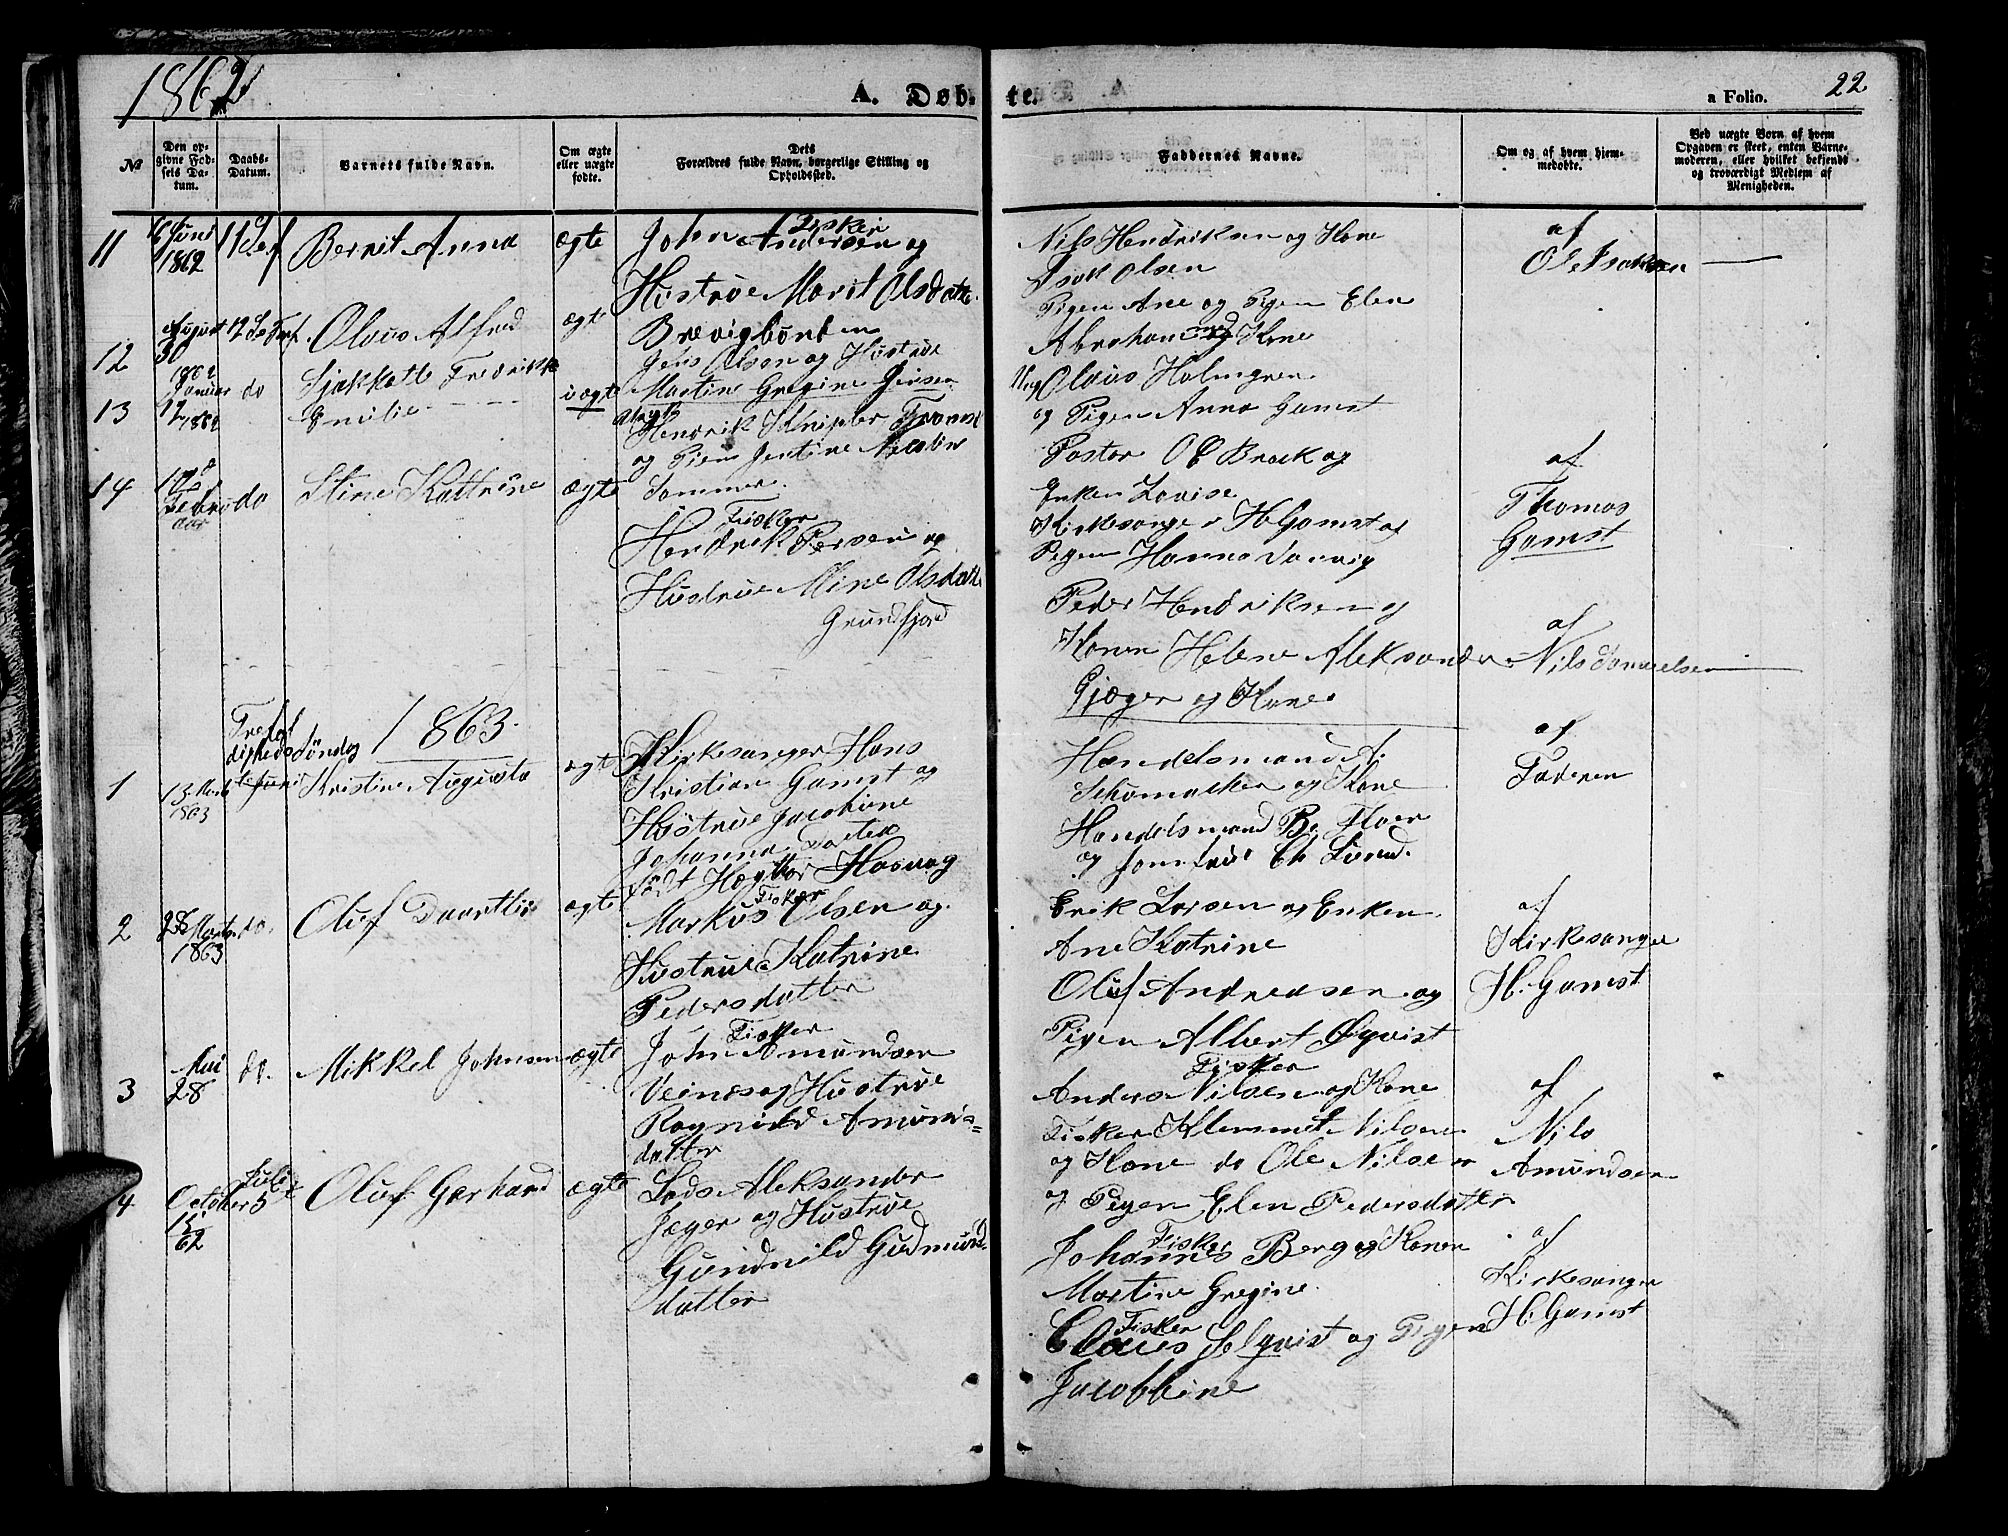 1862
A. Døb-
te.
a Folio.
22
№
Den op-
givne Fød-
sels Da-
tum.
Daabs-
Datum.
Barnets fulde Navn.
Om ægte
eller uægte
fødte.
Dets
Forældres fulde Navn, borgerlige Stilling og
Opholdssted.
Faddernes Navne.
Om og af hvem hjem-
medøbte.
Ved uægte Børn af hvem
Opgaven er skeet, enten Barne-
moderen, eller hvilket bekjendt
og troværdigt Medlem af
Menigheden.
11
Juni
1862
Berrit Anna
ægte
Fisker
John Andersen og
Hustrue Marit Olsdatte
Nils Hendriksen og Kone
Isak Olsen
Pigen Ane og Pigen Elen
af
Ole Isaksen
12
August
30
1862
Olaus Alfred
ægte
Brevigbotn
Jens Olsen og Hustrue
Martine Gregine Jensen
Abraham med Kone
Olaus Holmgren
og Pigen Anna Gamst
13
Januar
12
1862
do
Sjakkatte Fredrikke
Emilie
uægte
Hendrik Knipler
og Pigen Jentine Nicoline
Sommer.
Pastor O C Brock og
Enken Lovise
Kirkesanger H Gamst og
Pigen Hanna
af
Thomas
Gamst
14
Febru
ar
do
Stine Kattrine
ægte
Fisker
Hendrik Persen og
Hustrue Mine Olsdatte
Grundfjord
Peder Hendriksen og
Konen Helene Aleksander
Gjæger og Kone
af
Nils Samuelsen
1863.
1
13 Marts
1863
Trefol
digheds Søndag
Juni
Kristine Augusta
ægte
Kirkesanger Hans
Kristian Gamst og
Hustrue Jacobine
Johanna Dortea
født Hasvag
Handelsmand A.
Schumacker og Kone
Handelsmand
og Jomfrue Ch Lund.
af
Faderen
2
28 Marts
1863
do.
Oluf
ægte
Fisker
Markus Olsen og
Hustrue Katrine
Pedersdatter
Erik Larsen og Enken
Ane Katrine
Oluf Andreasen og
Pigen Albert Øqvist
af
Kirkesanger
H. Gamst
3
Mai
28
do.
Mikkel Johnsen
ægte
Fisker
John Amundsen
Veines og Hustrue
Ragnild Amunds=
datter
Fisker
Anders Nilsen og Kone
Fisker Klemmet Nilsen
og Kone do Ole Nilsen
og Pigen Elen Pedersdatter
af
Nils
Amundsen
4
October
15
62
Julie
5
Oluf Gerhard
ægte
Lods Aleksander
Jæger og Hustrue
Gundnild Gudmund-
datter
Fisker
Johannes Berg og Konen
Martine Gregine
Fisker
Claus Selqvist og Pigen
Jacobbine
af
Kirkesanger
H. Gamst